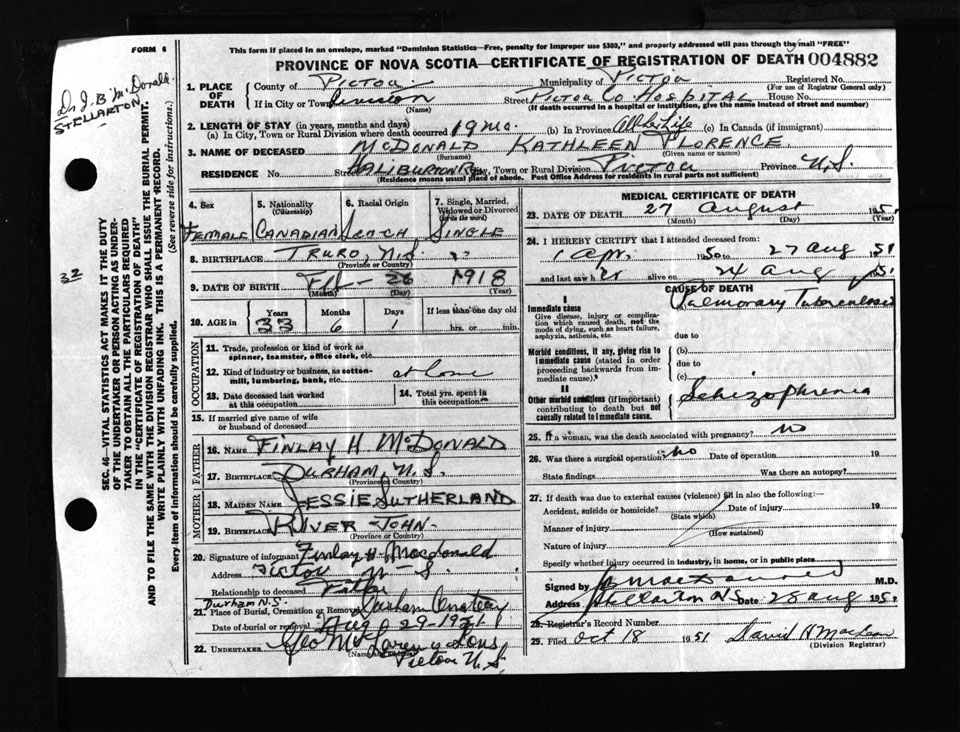 This form if placed in an envelope, marked "Dominion Statistics—Free, penalty for improper use $300," and properly addressed will pass through the mail "FREE"
FORM 6
PROVINCE OF NOVA SCOTIA—CERTIFICATE OF REGISTRATION OF DEATH 004882
Dr J. B. McDonald
STELLARTON
32
SEC. 46—VITAL STATISTICS ACT MAKES IT THE DUTY
OF THE UNDERTAKER OR PERSON ACTING AS UNDER-
TAKER TO OBTAIN ALL THE PARTICULARS REQUIRED
IN THE "CERTIFICATE OF REGISTRATION OF DEATH"
AND TO FILE THE SAME WITH THE DIVISION REGISTRAR WHO SHALL ISSUE THE BURIAL PERMIT.
WRITE PLAINLY WITH UNFADING INK. THIS IS A PERMANENT RECORD.
Every item of information should be carefully supplied. (See reverse side for instructions.)
1. PLACE OF DEATH County of Pictou Municipality of Pictou Registered No.
(For use of Registrar General only)
If in City or Town Street Pictou Co Hospital House No.
(Name) (If death occurred in a hospital or institution, give the name instead of street and number)
2. LENGTH OF STAY (in years, months and days)
(a) In City, Town or Rural Division where death occurred 19 mo. (b) In Province All her Life (c) In Canada (if immigrant)
3. NAME OF DECEASED McDONALD KATHLEEN FLORENCE
(Surname) (Given name or names)
RESIDENCE No. Street HALIBURTON Rd City, Town or Rural Division Pictou Province N.S.
(Residence means usual place of abode. Post Office Address for residents in rural parts not sufficient)
4. Sex 5. Nationality (Citizenship) 6. Racial Origin 7. Single, Married, Widowed or Divorced (write the word)
FEMALE CANADIAN SCOTCH SINGLE
8. BIRTHPLACE TRURO, N.S.
(Province or Country)
9. DATE OF BIRTH Feb - 26 1918
(Month) (Day) (Year)
10. AGE in Years Months Days If less than one day old
33 6 1 hrs. or min.
OCCUPATION
11. Trade, profession or kind of work as spinner, teamster, office clerk, etc.
12. Kind of industry or business, as cotton-mill, lumbering, bank, etc. at home
13. Date deceased last worked at this occupation 14. Total yrs. spent in this occupation
15. If married give name of wife or husband of deceased
FATHER
16. NAME FINLAY H McDONALD
17. BIRTHPLACE DURHAM, N.S.
(Province or Country)
MOTHER
18. MAIDEN NAME JESSIE SUTHERLAND
19. BIRTHPLACE RIVER JOHN
(Province or Country)
20. Signature of informant Finlay H Macdonald
Address Pictou N-S.
Relationship to deceased Father
Durham N.S.
21. Place of Burial, Cremation or Removal Durham Cemetery
Date of burial or removal Aug 29-1951
22. UNDERTAKER Geo McLaren & Sons
(Name and Address)
Pictou N.S.
MEDICAL CERTIFICATE OF DEATH
23. DATE OF DEATH 27 August 1951
(Month) (Day) (Year)
24. I HEREBY CERTIFY that I attended deceased from:
1 Apr. 1950 to 27 Aug 1951
and last saw her alive on 24 Aug 1951
CAUSE OF DEATH
I
Immediate cause Pulmonary Tuberculosis
Give disease, injury or complication which caused death, not the mode of dying, such as heart failure, asphyxia, asthenia, etc.
due to
Morbid conditions, if any, giving rise to immediate cause (stated in order proceeding backwards from immediate cause).
(b)
due to
(c)
II
Other morbid conditions (if important) contributing to death but not causally related to immediate cause.
Schizophrenia
25. If a woman, was the death associated with pregnancy? No
26. Was there a surgical operation? No Date of operation 19
State findings Was there an autopsy?
27. If death was due to external causes (violence) fill in also the following:
Accident, suicide or homicide? Date of injury 19
(State which)
Manner of injury
(How sustained)
Nature of injury
Specify whether injury occurred in industry, in home, or in public place
Signed by JB MacDonald M.D.
Address Stellarton N.S. Date 28 Aug 1951
28. Registrar's Record Number
29. Filed Oct 18 1951 David H MacLean
(Division Registrar)